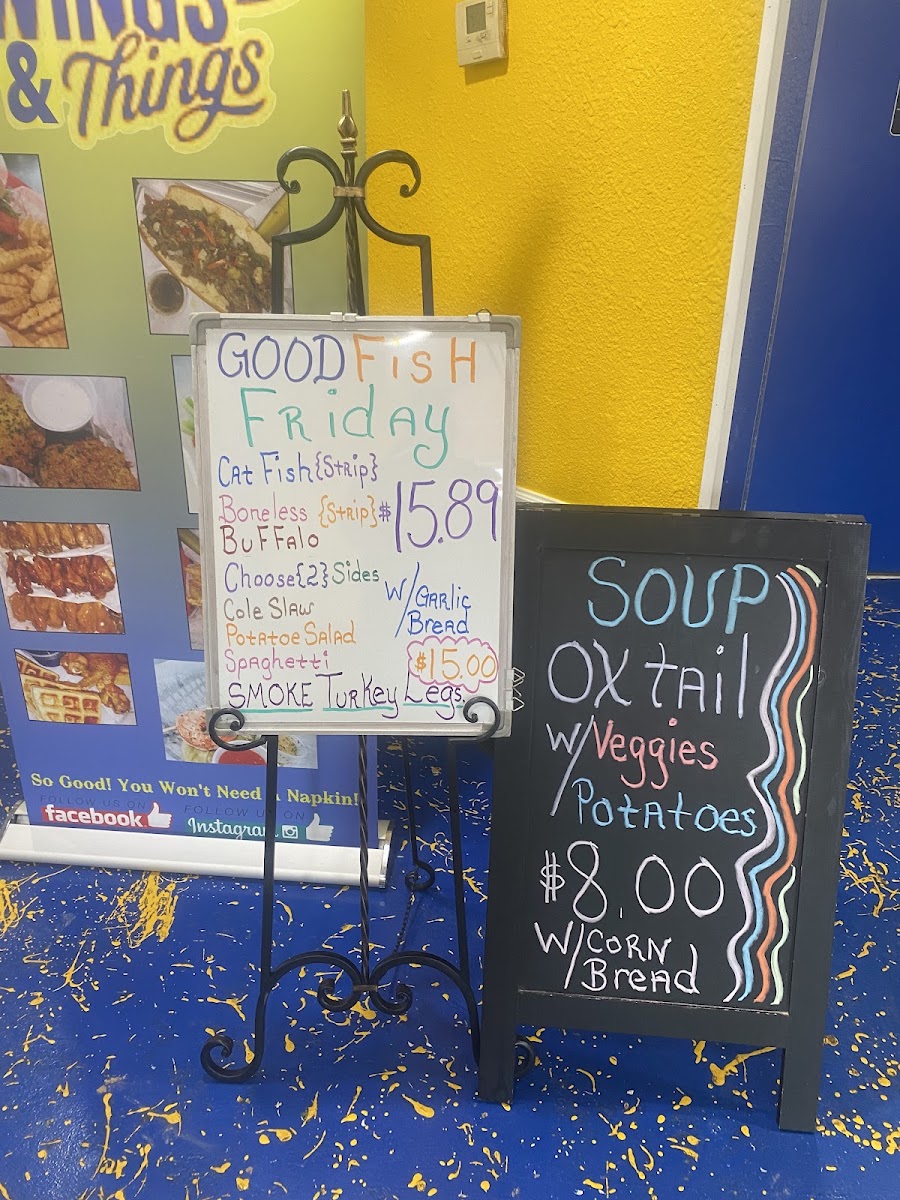 WINGS
& Things
So Good! You Won't Need A Napkin!
FOLLOW US ON
facebook
FOLLOW US ON
Instagram
GOOD FisH
FRiday
Cat Fish {Strip}
Boneless {Strip} $15.89
BuFFalo
Choose {2} Sides
W/Garlic
Bread
Cole Slaw
Potatoe Salad
Spaghetti
$15.00
SMOKE Turkey Legs
SOUP
OXtAil
W/Veggies
Potatoes
$8.00
W/CORN
Bread